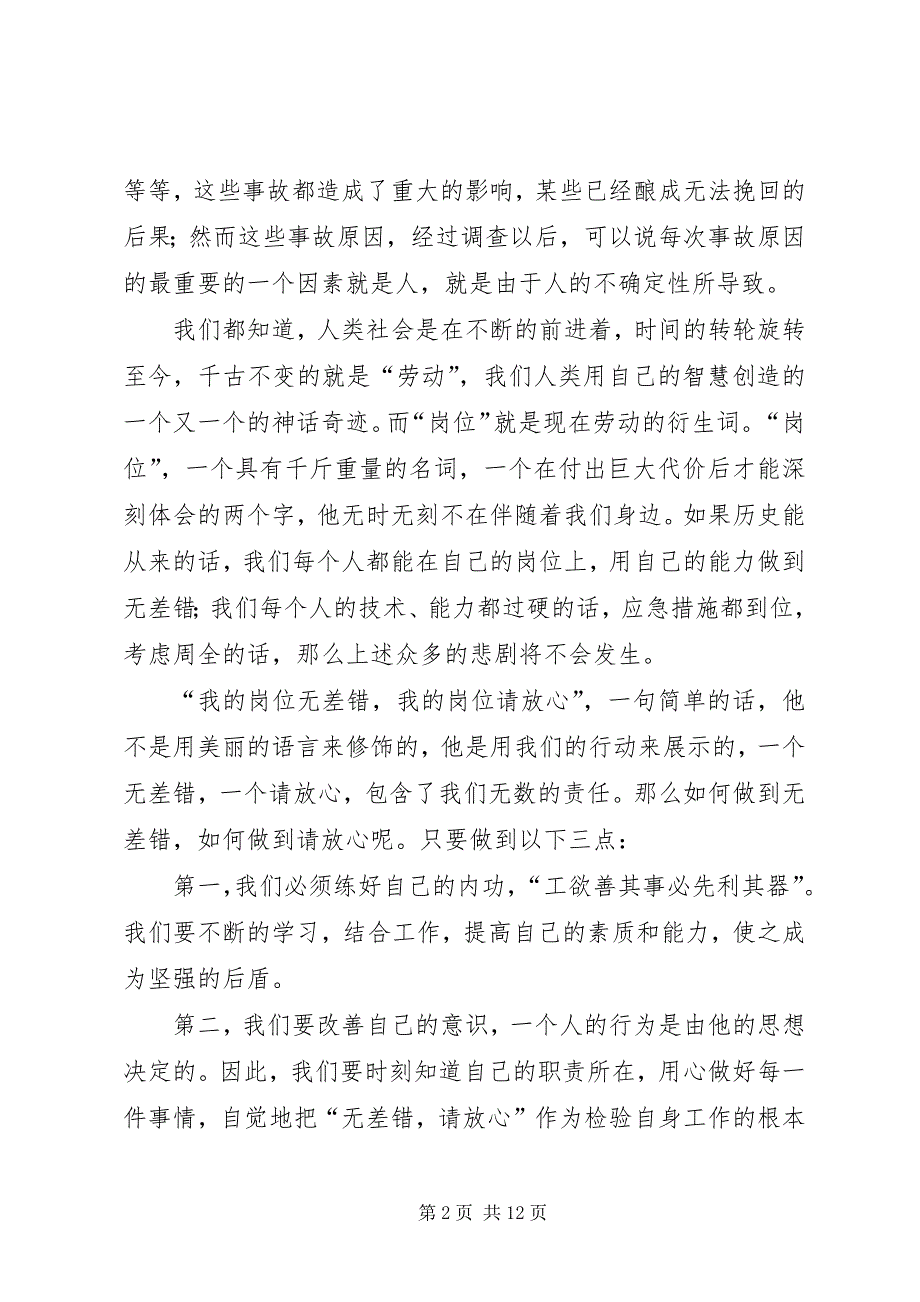 等等，这些事故都造成了重大的影响，某些已经酿成无法挽回的
后果；然而这些事故原因，经过调查以后，可以说每次事故原因
的最重要的一个因素就是人，就是由于人的不确定性所导致。
我们都知道，人类社会是在不断的前进着，时间的转轮旋转
至今，千古不变的就是“劳动”，我们人类用自己的智慧创造的
一个又一个的神话奇迹。而“岗位”就是现在劳动的衍生词。“岗
位”，一个具有千斤重量的名词，一个在付出巨大代价后才能深
刻体会的两个字，他无时无刻不在伴随着我们身边。如果历史能
从来的话，我们每个人都能在自己的岗位上，用自己的能力做到
无差错；我们每个人的技术、能力都过硬的话，应急措施都到位，
考虑周全的话，那么上述众多的悲剧将不会发生。
“我的岗位无差错，我的岗位请放心”，一句简单的话，他
不是用美丽的语言来修饰的，他是用我们的行动来展示的，一个
无差错，一个请放心，包含了我们无数的责任。那么如何做到无
差错，如何做到请放心呢。只要做到以下三点：
第一，我们必须练好自己的内功，“工欲善其事必先利其器”。
我们要不断的学习，结合工作，提高自己的素质和能力，使之成
为坚强的后盾。
第二，我们要改善自己的意识，一个人的行为是由他的思想
决定的。因此，我们要时刻知道自己的职责所在，用心做好每一
件事情，自觉地把“无差错，请放心”作为检验自身工作的根本
第 2 页 共 12 页